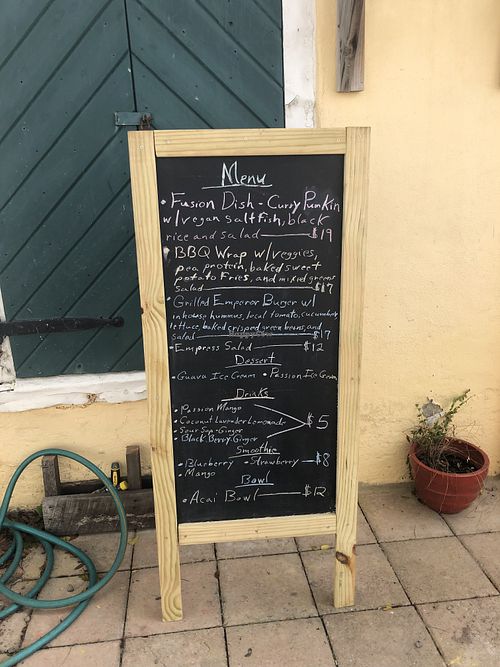 Menu
• Fusion Dish - Curry Pumkin
w/vegan saltfish, black
rice and salad — $19
• BBQ Wrap w/veggies,
pea protein, baked sweet
potato fries, and mixed greens
salad — $17
• Grilled Emperor Burger w/
inhouse hummus, local tomato, cucumber
lettuce, baked crisped green beans, and
salad — $17
• Empress Salad — $12
Dessert
• Guava Ice Cream • Passion Ice Cream
Drinks
• Passion Mango
• Coconut Lavender Lemonade
• Sour Sop-Ginger
• Black Berry Ginger
$5
Smoothie
• Blueberry • Strawberry — $8
• Mango
Bowl
• Acai Bowl — $12